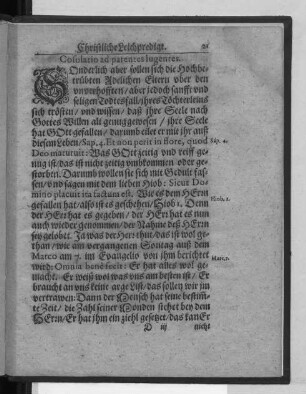 Christliche Leichpredigt.
Cõsolatio ad parentes lugentes.
SOnderlich aber sollen sich die Hochbe-
trübten Adelichen Eltern ober den
unverhofften / aber jedoch sanfft und
seligen Todtesfall / ihres Töchterleins
sich trösten / und wissen / daß ihre Seele nach
Gottes Willen alt gnung gewesen / ihre Seele
hat GOtt gefallen / darumb eilet er mit ihr auß
diesem Leben / Sap. 4. Et non perit in flore, quod
Sap. 4.
Deo maturuit: Was GOtt zeitig und reiff ge-
nung ist / das ist nicht zeitig umbkommen oder ge-
storben. Darumb wollen sie sich mit Gedult fas-
sen / und sagen mit dem lieben Hiob: Sicut Do-
mino placuit ita factum est. Wie es dem HErrn
gefallen hat / also ist es geschehen / Hiob 1. Denn
Hiob. 1.
der HErr hat es gegeben / der HErr hat es nun
auch wieder genommen / der Nahme deß HErrn
sey gelobet. Ja was der HErr thut / das ist wol ge-
than / wie am vergangenen Sontag auß dem
Marco am 7. im Evangelio von ihm berichtet
Marc. 7.
wird: Omnia bene fecit: Er hat alles wol ge-
macht. Er weiß wol was uns am besten ist / Er
braucht an uns keine arge List / das sollen wir ihm
vertrawen: Dann der Mensch hat seine bestim-
te Zeit / die Zahl seiner Monden stehet bey dem
HErrn / Er hat ihm ein ziehl gesetzet / das kan Er
D iij
nicht